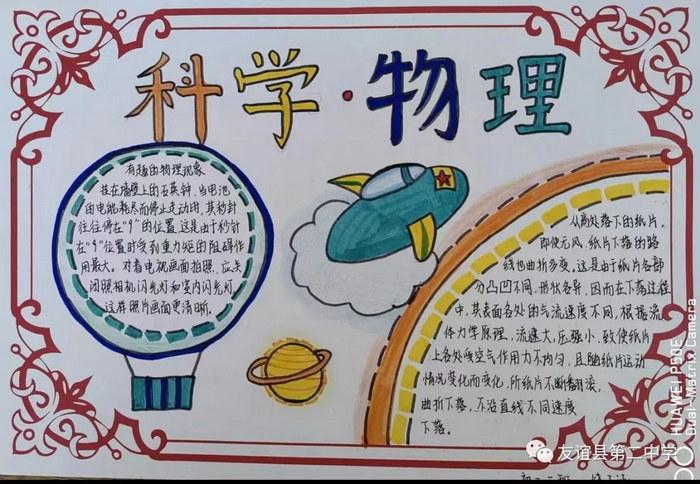 科学·物理
有趣的物理现象
挂在墙壁上的石英钟,当电池
的电能耗尽而停止走动时,其秒针
往往停在“9”的位置.这是由于秒针
在“9”位置时受到重力矩的阻碍作
用最大。对着电视画面拍照,应关
闭照相机闪光灯和室内闪光灯,
这样照片画面更清晰。
从高处落下的纸片,
即使无风,纸片下落的路
线也曲折多变。这是由于纸片各部
分凸凹不同,形状各异,因而在下落过程
中,其表面各处的气流速度不同,根据流
体力学原理,流速大,压强小,致使纸片
上各处受空气作用力不均匀,且随纸片运动
情况变化而变化,所纸片不断翻滚,
曲折下落,不没直线不同速度
下落。
HUAWEI P50E
Dual-Matrix Camera
友谊县第二中学